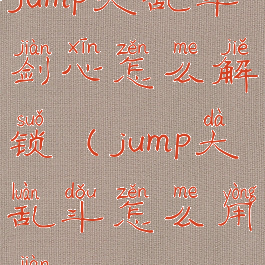 jump大乱斗
jiàn xīn zěn me jiě
剑心怎么解
suǒ dà
锁（jump大
luàn dòu zěn me yòng
乱斗怎么用
jiàn